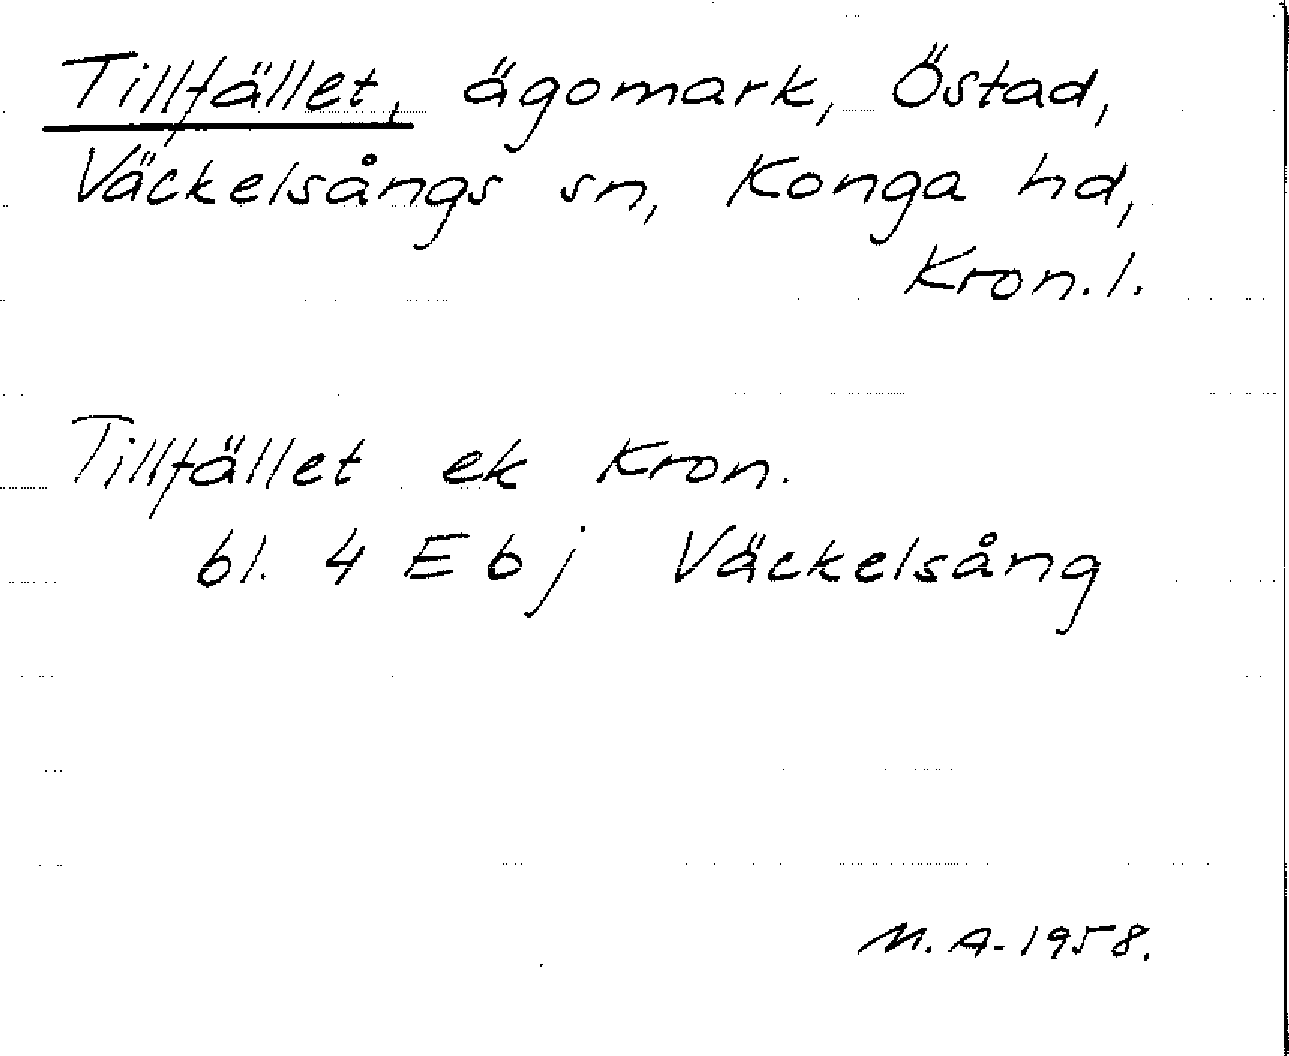 Tillfället, ägomark, Östad,
Väckelsångs sn, Konga hd,
Kron. l.
Tillfället ek Kron.
bl. 4 E b j Väckelsång
M. A. 1958.